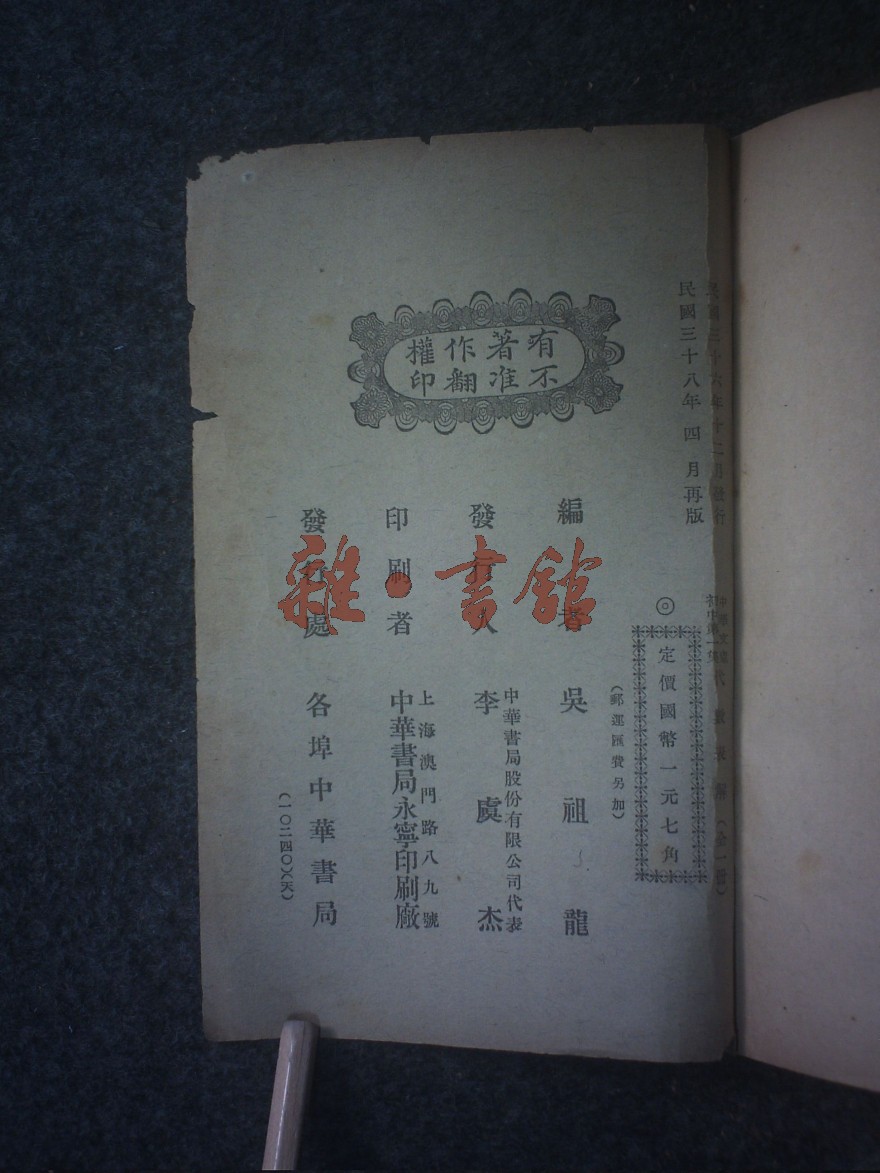 民國三十六年十二月發行
民國三十八年四月再版
初中第一集
中華文庫
代數表解（全一冊）
◎定價國幣一元七角
（郵運匯費另加）
有著作權
不准翻印
編者 吳祖龍
發行人 李虞杰
中華書局股份有限公司代表
印刷者 中華書局永寧印刷廠
上海澳門路八九號
發行處 各埠中華書局
（一〇二四〇）
雜·書館